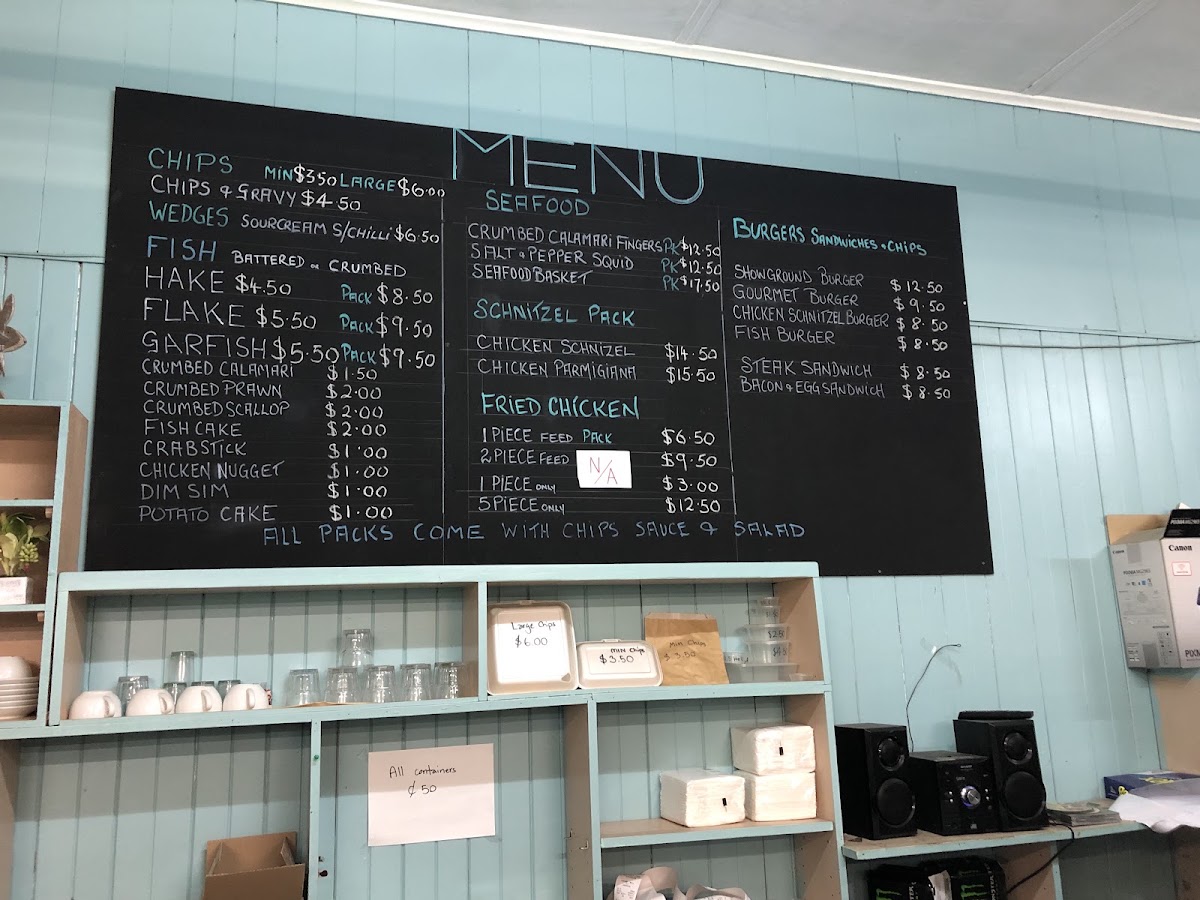 MENU
CHIPS MIN $3.50 LARGE $6.00
CHIPS & GRAVY $4.50
WEDGES SOURCREAM S/CHILLI $6.50
FISH BATTERED or CRUMBED
HAKE $4.50 PACK $8.50
FLAKE $5.50 PACK $9.50
GARFISH $5.50 PACK $9.50
CRUMBED CALAMARI $1.50
CRUMBED PRAWN $2.00
CRUMBED SCALLOP $2.00
FISH CAKE $2.00
CRABSTICK $1.00
CHICKEN NUGGET $1.00
DIM SIM $1.00
POTATO CAKE $1.00
SEAFOOD
CRUMBED CALAMARI FINGERS PK $12.50
SALT & PEPPER SQUID PK $12.50
SEAFOOD BASKET PK $17.50
SCHNITZEL PACK
CHICKEN SCHNIZEL $14.50
CHICKEN PARMIGIANA $15.50
FRIED CHICKEN
1 PIECE FEED PACK $6.50
2 PIECE FEED N/A $9.50
1 PIECE ONLY $3.00
5 PIECE ONLY $12.50
BURGERS SANDWICHES & CHIPS
SHOWGROUND BURGER $12.50
GOURMET BURGER $9.50
CHICKEN SCHNITZEL BURGER $8.50
FISH BURGER $8.50
STEAK SANDWICH $8.50
BACON & EGG SANDWICH $8.50
ALL PACKS COME WITH CHIPS SAUCE & SALAD
Large Chips
$6.00
MIN Chips
$3.50
Min Chips
$3.50
All containers
¢50
Canon
PIXMA